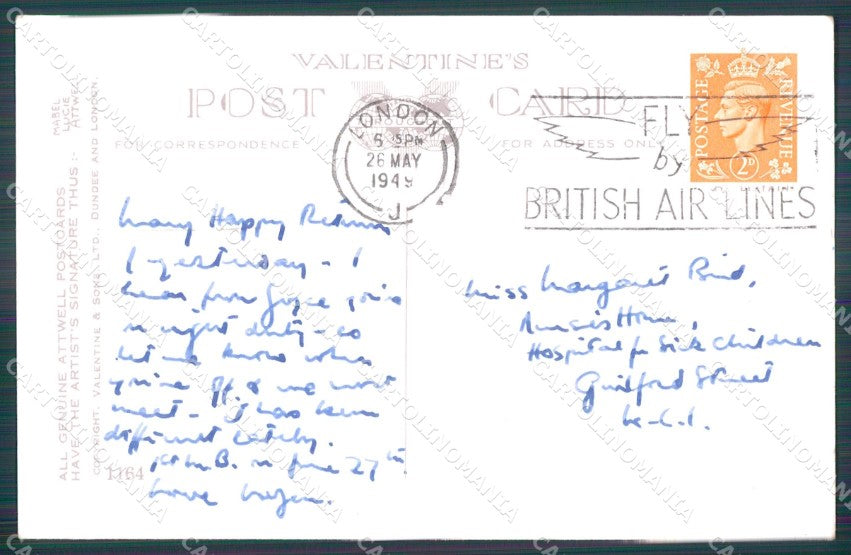 VALENTINE'S
POST CARD
FOR CORRESPONDENCE FOR ADDRESS ONLY
MABEL
LUCIE
ATTWELL
ALL GENUINE ATTWELL POSTCARDS
HAVE THE ARTIST'S SIGNATURE THUS :-
COPYRIGHT. VALENTINE & SONS. LTD. DUNDEE AND LONDON.
LONDON
26 MAY
1949
J
FLY
by
BRITISH AIR LINES
POSTAGE
REVENUE
2D
Many Happy Returns
of yesterday - I
hear from Joyce you're
on night duty - so
let me know when
you're off & we must
meet - it has been
difficult lately.
B. is June 27th
Love
1164
Miss Margaret Bird,
Nurses Home,
Hospital for Sick Children
Guilford Street
W.C.1.
CARTOLINOMANIA